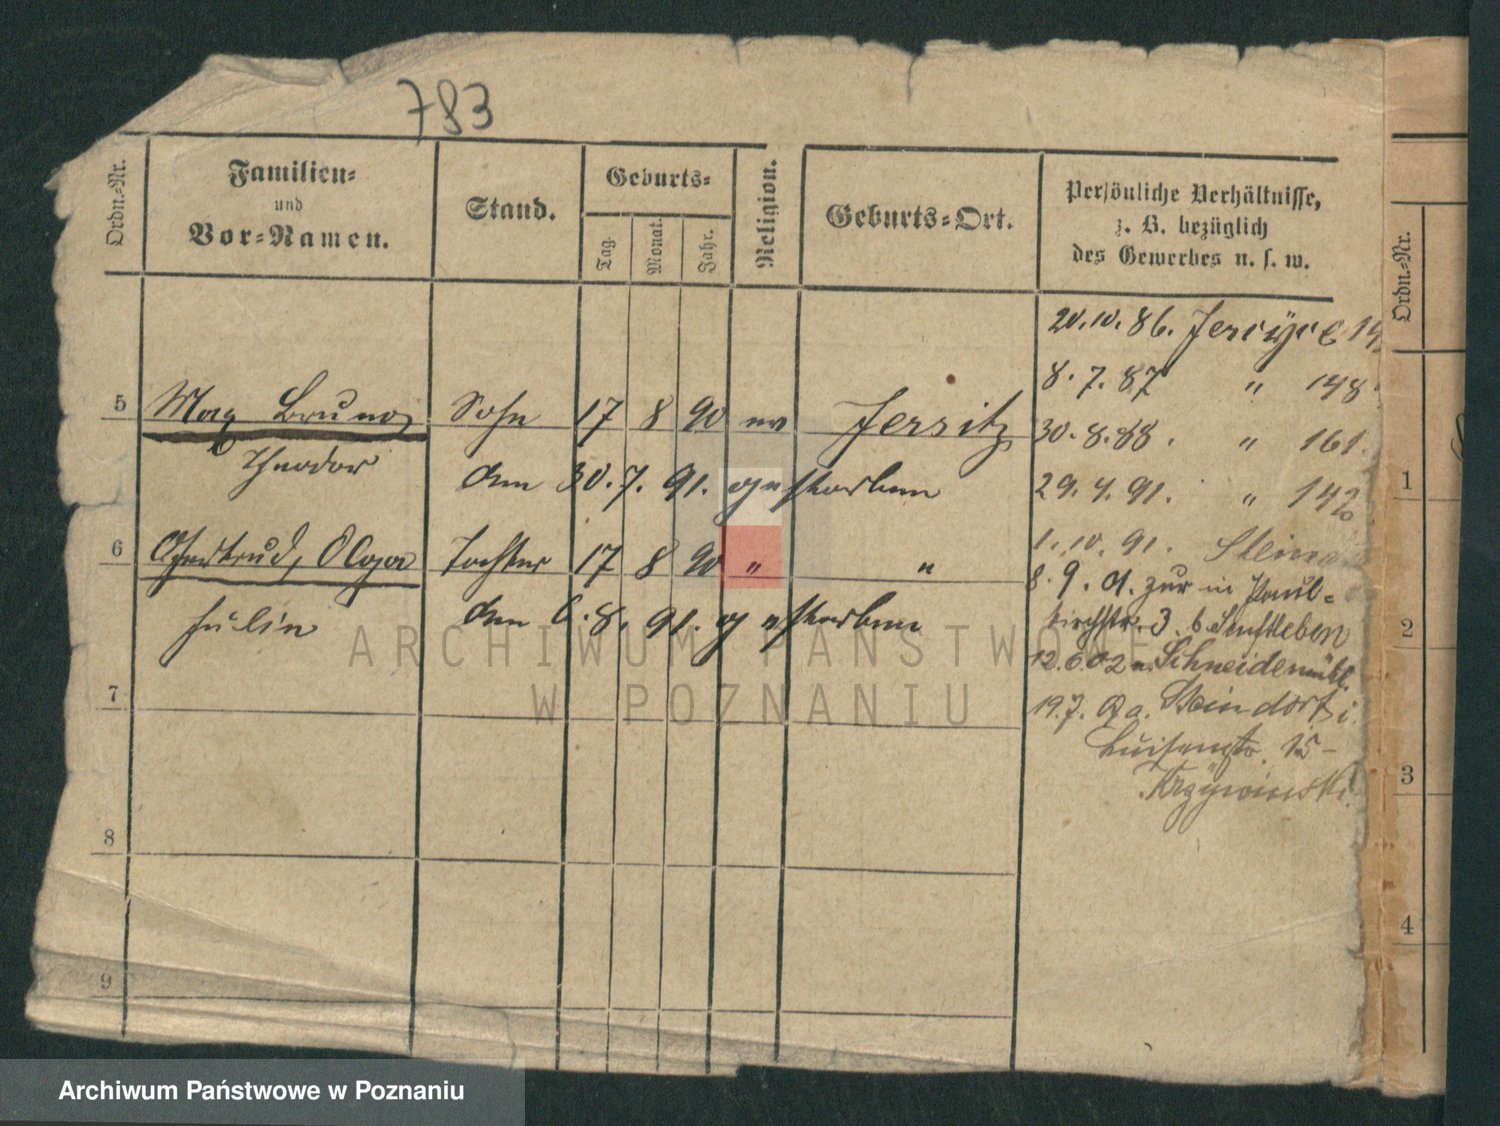 783
Ordn.=Nr.
Familien=
und
Vor=Namen.
Stand.
Geburts=
Tag.
Monat.
Jahr.
Religion.
Geburts=Ort.
Persönliche Verhältnisse,
z. B. bezüglich
des Gewerbes u. s. w.
Ordn.=Nr.
20.10.86. Jerzyce
8.7.87 " 148
5 Max Bruno Sohn 17 8 90 ev Jersitz
30.8.88. " 161.
Theodor den 30.7.91. gestorben
29.4.91. " 142
1
1.10.91.
6 Gertrud, Olga Tochter 17 8 90 " "
8.9.01. zur in Paul=
Julie den 6.8.91. gestorben
kirchstr. 3 b Senftleben
2
12.6.02 n. Schneidemühl
7
19.7. a. Steindorf i.
Luisenstr. 15-
Krzywinski
3
8
4
9
ARCHIWUM PAŃSTWOWE
W POZNANIU
Archiwum Państwowe w Poznaniu